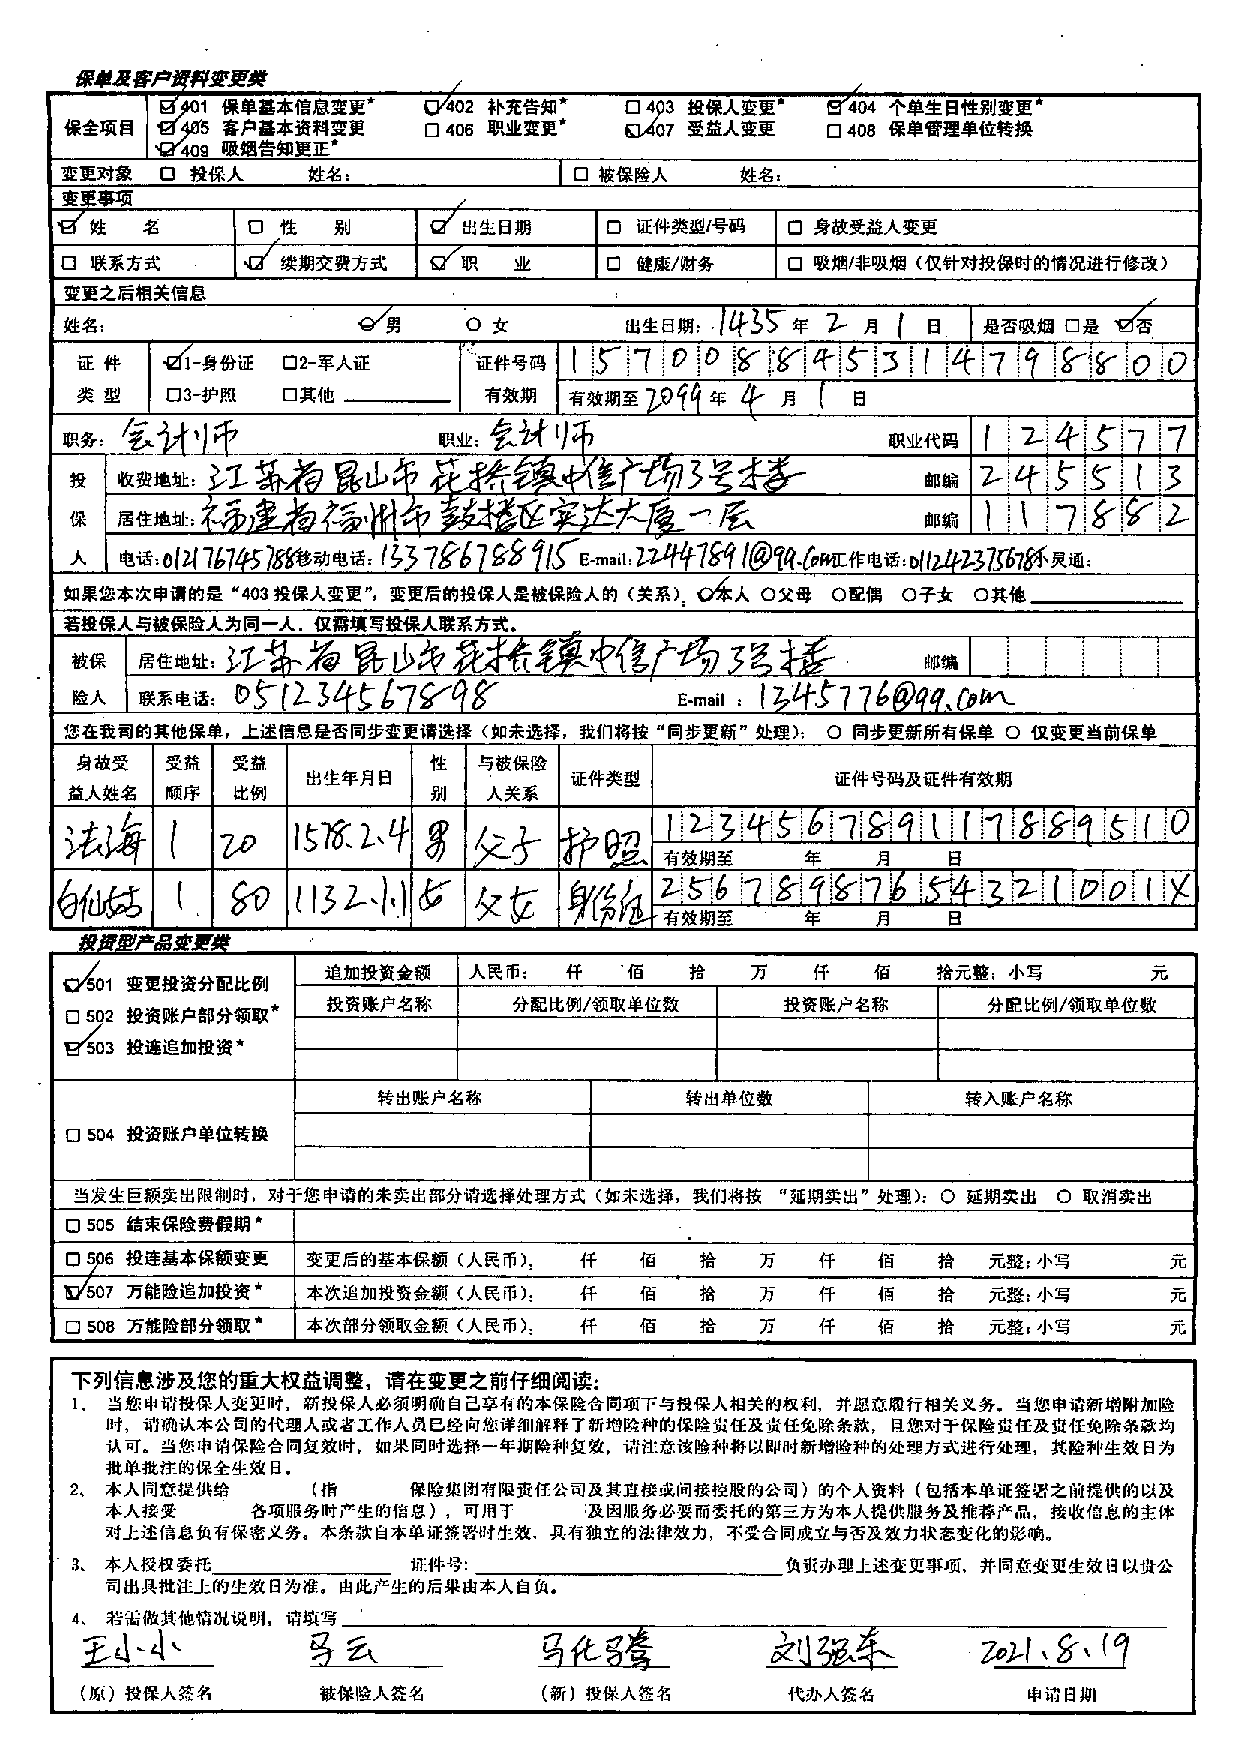 保单及客户资料变更类
保全项目 401 保单基本信息变更* 402 补充告知* 403 投保人变更* 404 个单生日性别变更*
405 客户基本资料变更 406 职业变更* 407 受益人变更 408 保单管理单位转换
409 吸烟告知更正*
变更对象 □ 投保人 姓名: □ 被保险人 姓名:
变更事项
姓 名 □ 性 别 出生日期 □ 证件类型/号码 □ 身故受益人变更
□ 联系方式 续期交费方式 职 业 □ 健康/财务 □ 吸烟/非吸烟(仅针对投保时的情况进行修改)
变更之后相关信息
姓名: 男 ○ 女 出生日期: 1435 年 2 月 1 日 是否吸烟 □是 否
证件类型 1-身份证 □2-军人证 证件号码 157008845314798800
□3-护照 □其他 有效期 有效期至 2099 年 4 月 1 日
职务: 会计师 职业: 会计师 职业代码 124577
投保人 收费地址: 江苏省昆山市花桥镇中信广场3号楼 邮编 245513
居住地址: 福建省福州市鼓楼区实达大厦一层 邮编 117882
电话: 012176745788 移动电话: 133786788915 E-mail: 22447891@qq.com 工作电话: 011242375678 小灵通:
如果您本次申请的是“403投保人变更”,变更后的投保人是被保险人的(关系): 本人 ○父母 ○配偶 ○子女 ○其他
若投保人与被保险人为同一人,仅需填写投保人联系方式。
被保险人 居住地址: 江苏省昆山市花桥镇中信广场3号楼 邮编
联系电话: 051234567898 E-mail : 1345776@qq.com
您在我司的其他保单,上述信息是否同步变更请选择(如未选择,我们将按“同步更新”处理): ○ 同步更新所有保单 ○ 仅变更当前保单
身故受益人姓名 受益顺序 受益比例 出生年月日 性别 与被保险人关系 证件类型 证件号码及证件有效期
法海 1 20 1578.2.4 男 父子 护照 123456789117889510
有效期至 年 月 日
白仙姑 1 80 1132.1.1 女 父女 身份证 25678987654321001X
有效期至 年 月 日
投资型产品变更类
501 变更投资分配比例 追加投资金额 人民币: 仟 佰 拾 万 仟 佰 拾元整;小写 元
□ 502 投资账户部分领取* 投资账户名称 分配比例/领取单位数 投资账户名称 分配比例/领取单位数
503 投连追加投资*
□ 504 投资账户单位转换 转出账户名称 转出单位数 转入账户名称
当发生巨额卖出限制时,对于您申请的未卖出部分请选择处理方式(如未选择,我们将按“延期卖出”处理): ○ 延期卖出 ○ 取消卖出
□ 505 结束保险费假期*
□ 506 投连基本保额变更 变更后的基本保额(人民币): 仟 佰 拾 万 仟 佰 拾 元整;小写 元
507 万能险追加投资* 本次追加投资金额(人民币): 仟 佰 拾 万 仟 佰 拾 元整;小写 元
□ 508 万能险部分领取* 本次部分领取金额(人民币): 仟 佰 拾 万 仟 佰 拾 元整;小写 元
下列信息涉及您的重大权益调整,请在变更之前仔细阅读:
1、当您申请投保人变更时,新投保人必须明确自己享有的本保险合同项下与投保人相关的权利,并愿意履行相关义务。当您申请新增附加险
时,请确认本公司的代理人或者工作人员已经向您详细解释了新增险种的保险责任及责任免除条款,且您对于保险责任及责任免除条款均
认可。当您申请保险合同复效时,如果同时选择一年期险种复效,请注意该险种将以即时新增险种的处理方式进行处理,其险种生效日为
批单批注的保全生效日。
2、本人同意提供给 (指 保险集团有限责任公司及其直接或间接控股的公司)的个人资料(包括本单证签署之前提供的以及
本人接受 各项服务时产生的信息),可用于 及因服务必要而委托的第三方为本人提供服务及推荐产品,接收信息的主体
对上述信息负有保密义务。本条款自本单证签署时生效,具有独立的法律效力,不受合同成立与否及效力状态变化的影响。
3、本人授权委托 证件号: 负责办理上述变更事项,并同意变更生效日以贵公
司出具批注上的生效日为准。由此产生的后果由本人自负。
4、若需做其他情况说明,请填写
王小小 马云 马化腾 刘强东 2021.8.19
(原)投保人签名 被保险人签名 (新)投保人签名 代办人签名 申请日期